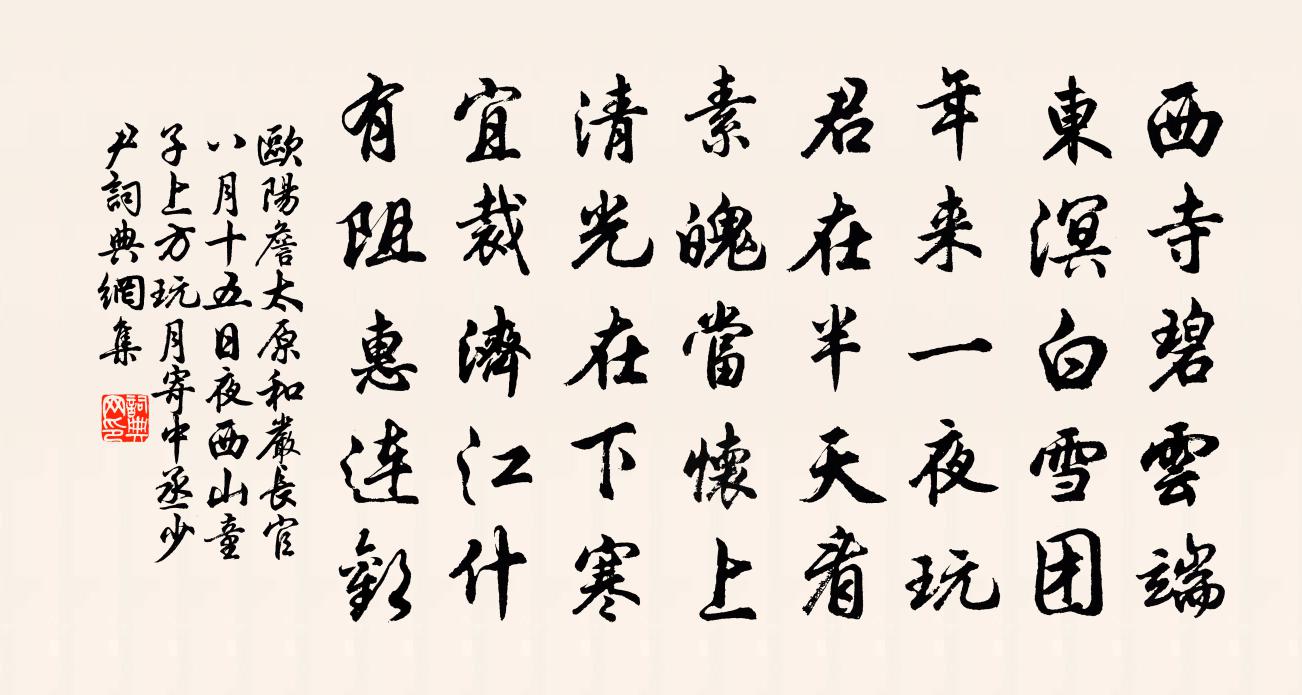 西寺碧雲端
東溟白雪团
年来一夜玩
君在半天看
素魄當懷上
清光在下寒
宜裁濟江什
有阻惠連歡
歐陽詹太原和嚴長官
八月十五日夜西山童
子上方玩月寄中丞少
尹詞典網集
詞典网印